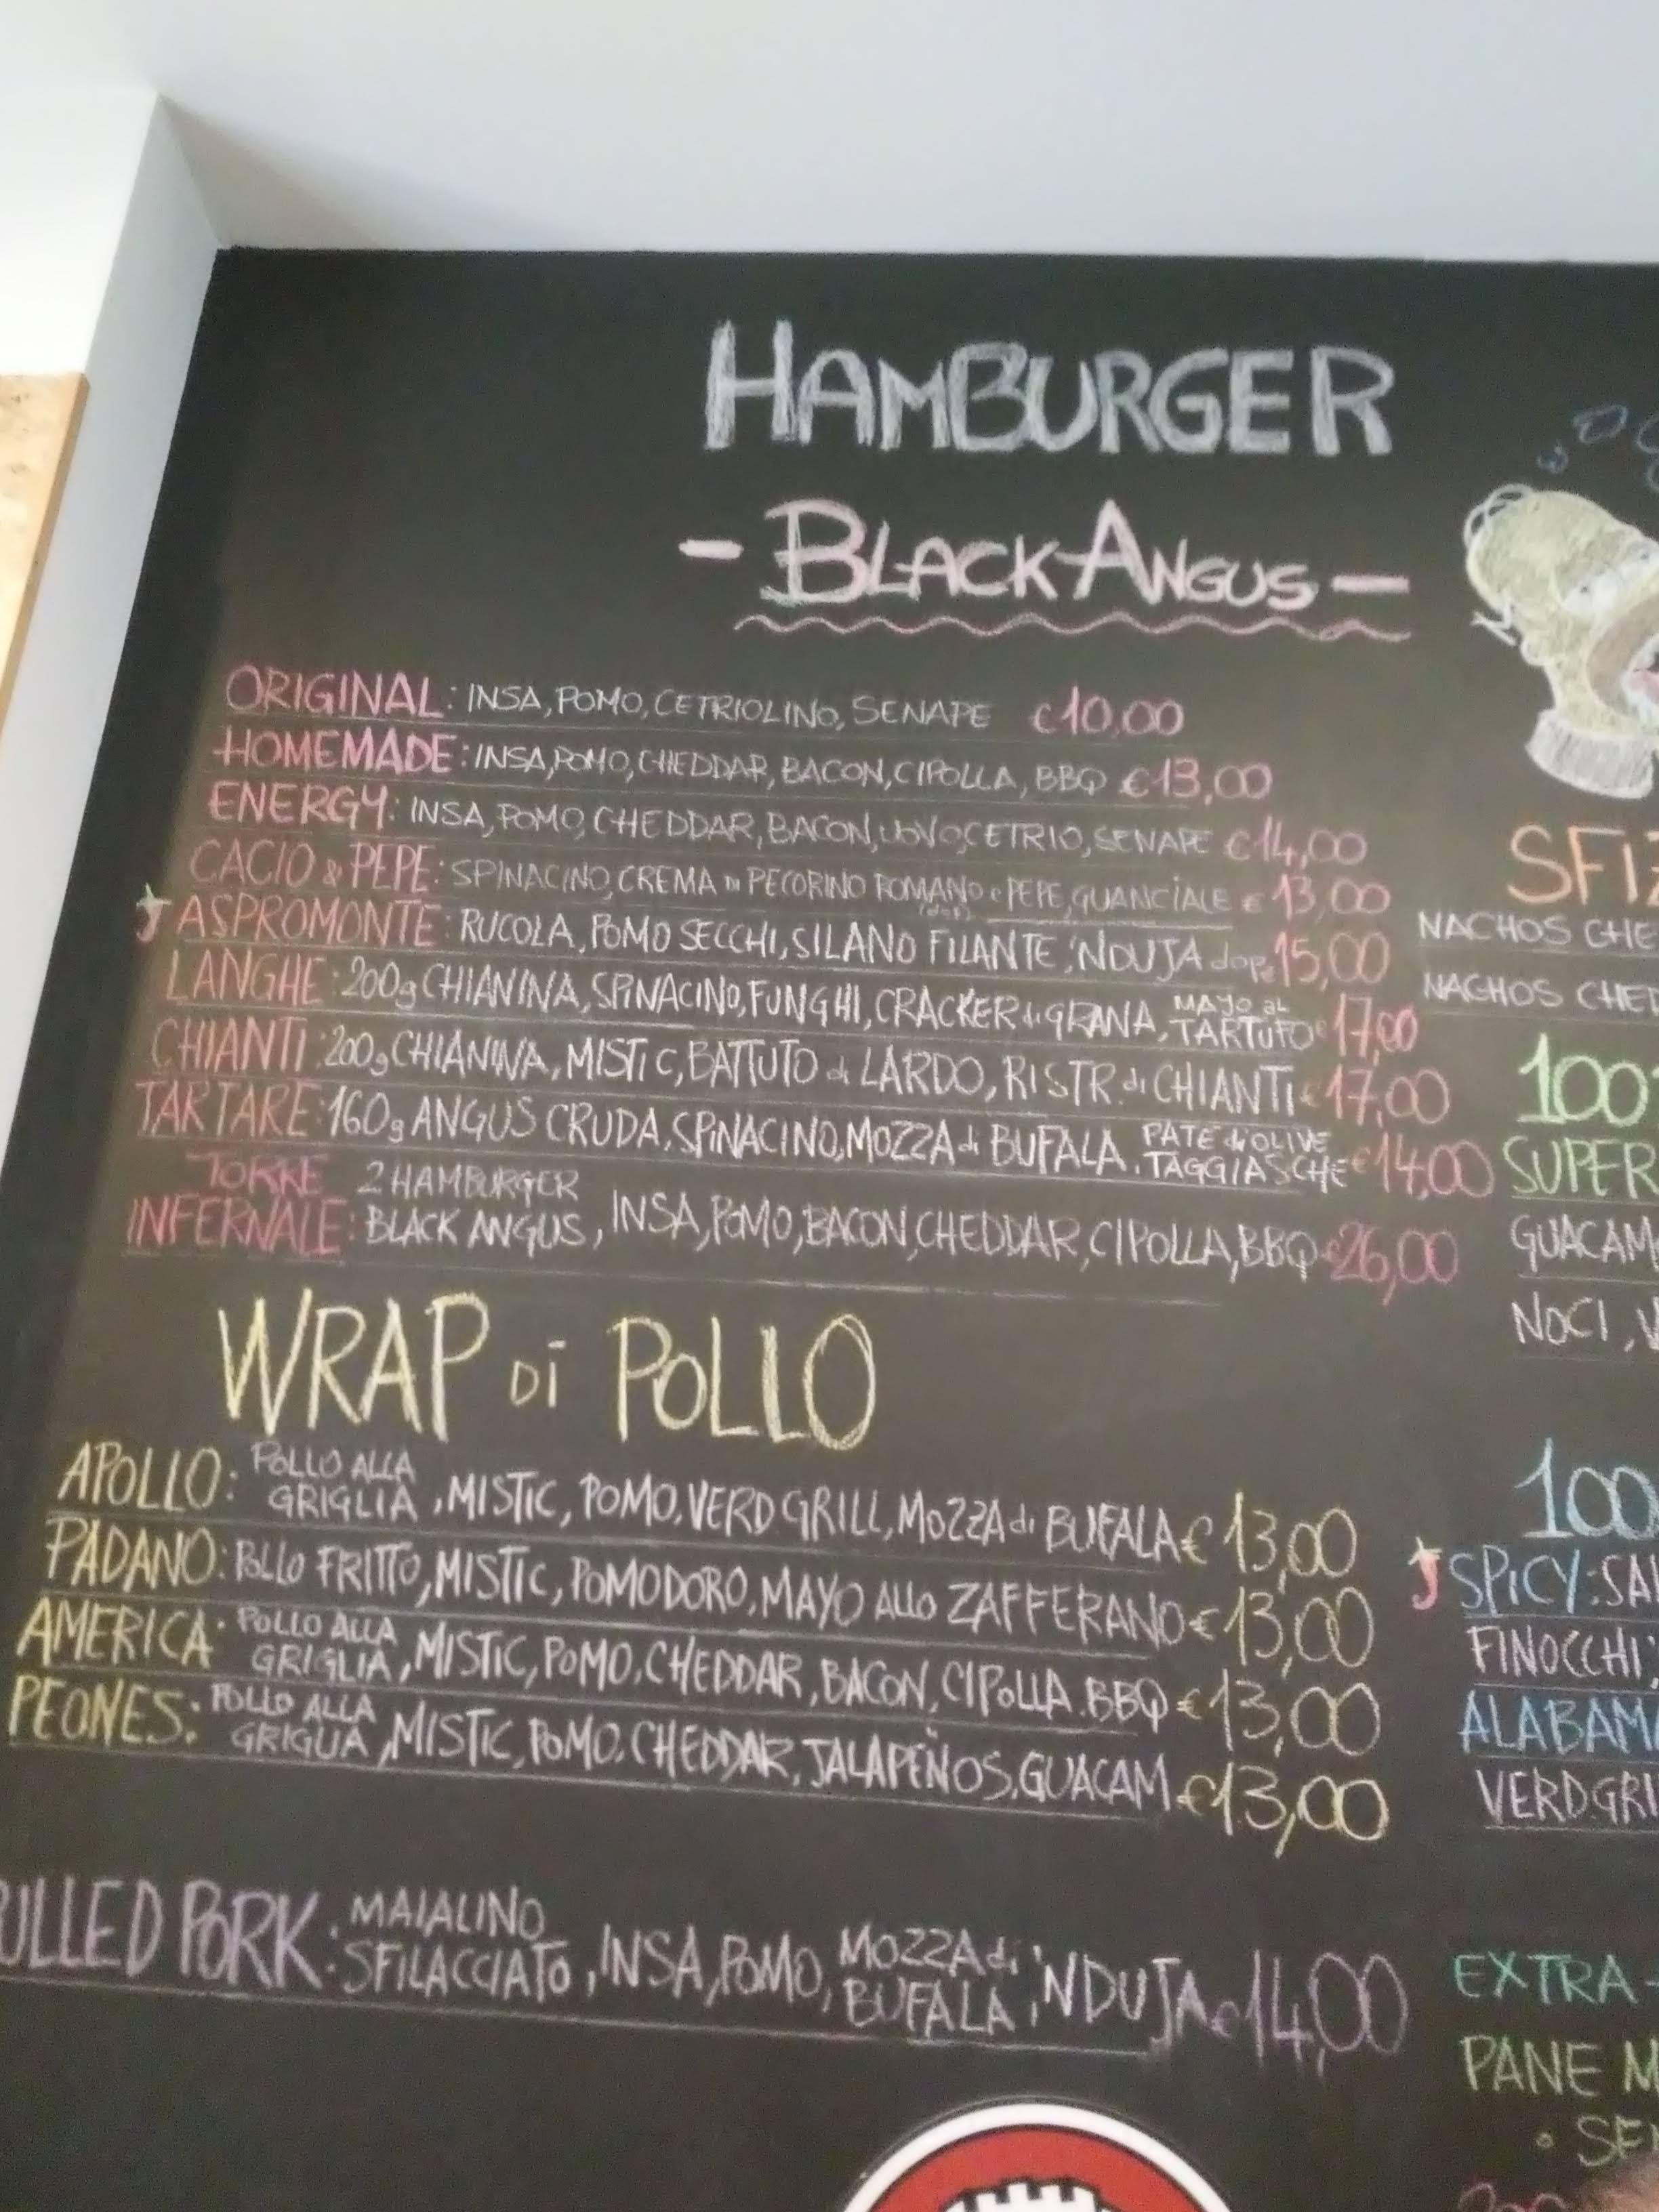 HAMBURGER
- BLACK ANGUS -
ORIGINAL: INSA, POMO, CETRIOLINO, SENAPE €10,00
HOMEMADE: INSA, POMO, CHEDDAR, BACON, CIPOLLA, BBQ €13,00
ENERGY: INSA, POMO, CHEDDAR, BACON, UOVO, CETRIO, SENAPE €14,00
CACIO & PEPE: SPINACINO, CREMA DI PECORINO ROMANO (dop) e PEPE, GUANCIALE € 13,00
ASPROMONTE: RUCOLA, POMO SECCHI, SILANO FILANTE, 'NDUJA dop €15,00
LANGHE: 200g CHIANINA, SPINACINO, FUNGHI, CRACKER di GRANA, MAYO AL TARTUFO € 17,00
CHIANTI: 200g CHIANINA, MISTIC, BATTUTO di LARDO, RISTR. di CHIANTI € 17,00
TARTARE: 160g ANGUS CRUDA, SPINACINO, MOZZA di BUFALA, PATÈ d'OLIVE TAGGIASCHE € 14,00
TORRE INFERNALE: 2 HAMBURGER BLACK ANGUS, INSA, POMO, BACON, CHEDDAR, CIPOLLA, BBQ €26,00
WRAP Di POLLO
APOLLO: POLLO ALLA GRIGLIA, MISTIC, POMO, VERD GRILL, MOZZA di BUFALA € 13,00
PADANO: POLLO FRITTO, MISTIC, POMODORO, MAYO ALLO ZAFFERANO € 13,00
AMERICA: POLLO ALLA GRIGLIA, MISTIC, POMO, CHEDDAR, BACON, CIPOLLA. BBQ € 13,00
PEONES: POLLO ALLA GRIGLIA, MISTIC, POMO, CHEDDAR, JALAPEÑOS, GUACAM €13,00
ULLED PORK: MAIALINO SFILACCIATO, INSA, POMO, MOZZA di BUFALA, 'NDUJA € 14,00
SFIZ
NACHOS CHE
NACHOS CHED
100
SUPER
GUACAM
NOCI, V
100
SPICY: SAL
FINOCCHI,
ALABAMA
VERDGRI
EXTRA -
PANE M
• SE